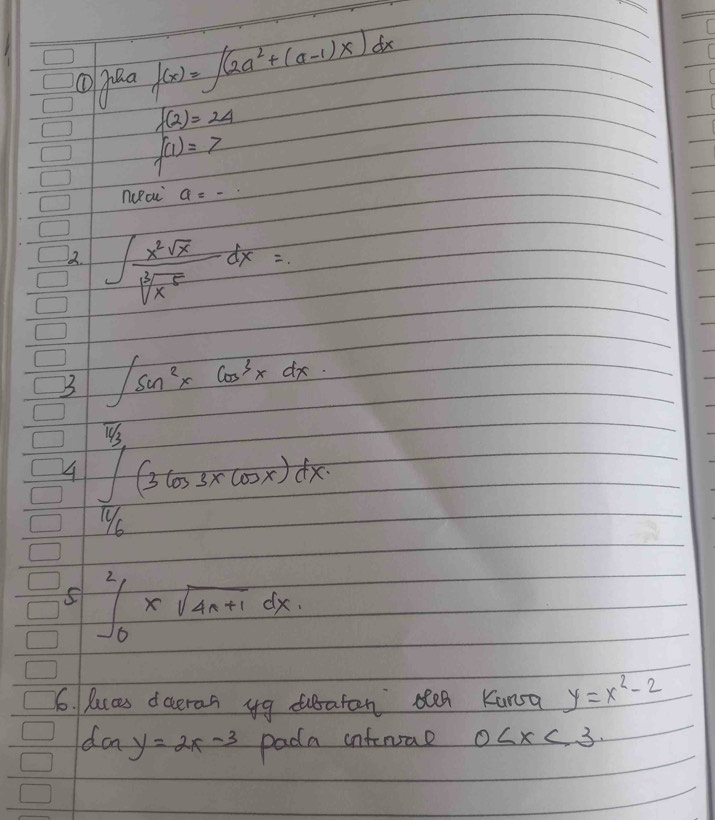 ① Jika f(x) = ∫(2a² + (a-1)x) dx
f(2) = 24
f(1) = 7
nilai a = - .
2. ∫ x²√x / ∛x⁵ dx = .
3 ∫ sin²x cos³x dx .
4 ∫_{π/6}^{π/3} (3 cos 3x cos x) dx.
5 ∫_{0}^{2} x √4x+1 dx .
6. luas daerah yg dibatasi oleh Kurva y = x² - 2
dan y = 2x - 3 pada interval 0 < x < 3.